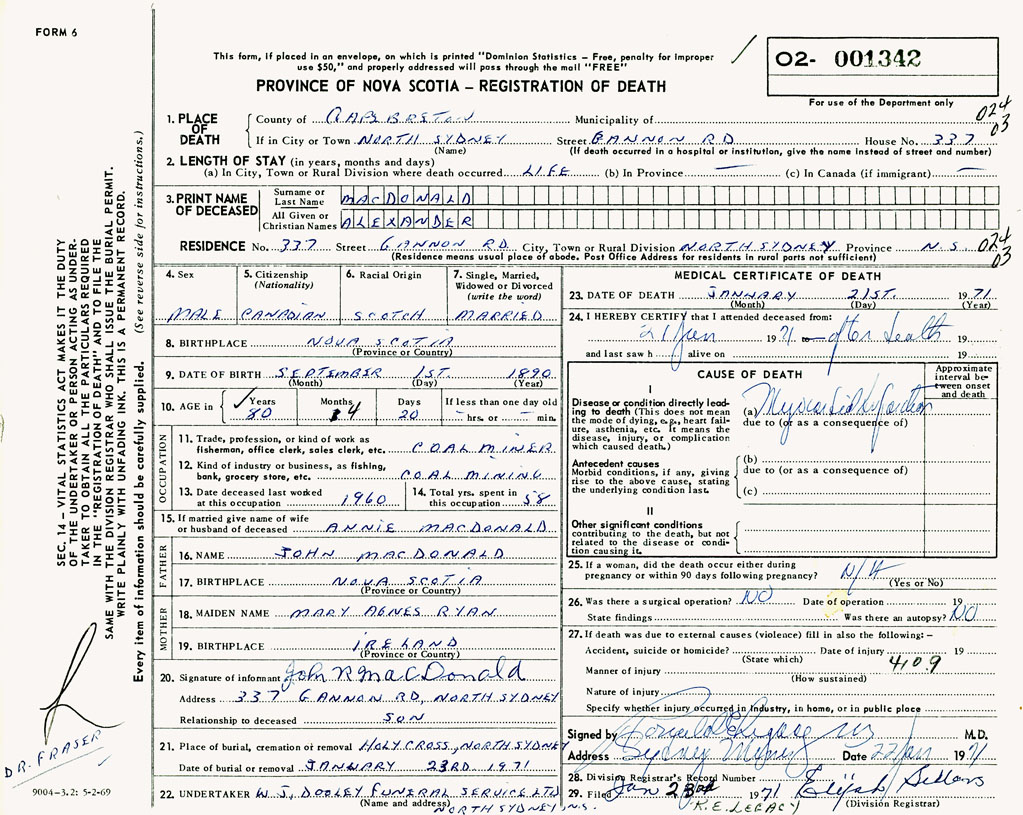 FORM 6
This form, if placed in an envelope, on which is printed "Dominion Statistics – Free, penalty for improper
use $50," and properly addressed will pass through the mail "FREE"
PROVINCE OF NOVA SCOTIA – REGISTRATION OF DEATH
O2- 001342
For use of the Department only
024
03
1. PLACE OF DEATH
County of CAPE BRETON Municipality of
If in City or Town NORTH SYDNEY Street GANNON RD House No. 337
(Name) (If death occurred in a hospital or institution, give the name instead of street and number)
2. LENGTH OF STAY (in years, months and days)
(a) In City, Town or Rural Division where death occurred LIFE (b) In Province — (c) In Canada (if immigrant) —
3. PRINT NAME OF DECEASED
Surname or Last Name MACDONALD
All Given or Christian Names ALEXANDER
RESIDENCE No. 337 Street GANNON RD City, Town or Rural Division NORTH SYDNEY Province N.S. 024
03
(Residence means usual place of abode. Post Office Address for residents in rural parts not sufficient)
4. Sex
MALE
5. Citizenship
(Nationality)
CANADIAN
6. Racial Origin
SCOTCH
7. Single, Married,
Widowed or Divorced
(write the word)
MARRIED
8. BIRTHPLACE NOVA SCOTIA
(Province or Country)
9. DATE OF BIRTH SEPTEMBER 1ST. 1890
(Month) (Day) (Year)
10. AGE in
Years
80
Months
4
Days
20
If less than one day old
– hrs. or – min.
OCCUPATION
11. Trade, profession, or kind of work as
fisherman, office clerk, sales clerk, etc. COAL MINER
12. Kind of industry or business, as fishing,
bank, grocery store, etc. COAL MINING
13. Date deceased last worked
at this occupation 1960
14. Total yrs. spent in
this occupation 58
15. If married give name of wife
or husband of deceased ANNIE MACDONALD
FATHER
16. NAME JOHN MACDONALD
17. BIRTHPLACE NOVA SCOTIA
(Province or Country)
MOTHER
18. MAIDEN NAME MARY AGNES RYAN
19. BIRTHPLACE IRELAND
(Province or Country)
20. Signature of informant John R MacDonald
Address 337 GANNON RD, NORTH SYDNEY
Relationship to deceased SON
21. Place of burial, cremation or removal HOLY CROSS, NORTH SYDNEY
Date of burial or removal JANUARY 23RD 1971
22. UNDERTAKER W. J. DOOLEY FUNERAL SERVICE LTD
(Name and address) NORTH SYDNEY N.S.
MEDICAL CERTIFICATE OF DEATH
23. DATE OF DEATH JANUARY 21ST. 1971
(Month) (Day) (Year)
24. I HEREBY CERTIFY that I attended deceased from:
21 Jan 1971 to after death
and last saw h alive on 19
CAUSE OF DEATH
Approximate
interval be-
tween onset
and death
I
Disease or condition directly lead-
ing to death (This does not mean
the mode of dying, e.g., heart fail-
ure, asthenia, etc. It means the
disease, injury, or complication
which caused death.)
(a) Myocardial Infarction
due to (or as a consequence of)
Antecedent causes
Morbid conditions, if any, giving
rise to the above cause, stating
the underlying condition last.
(b)
due to (or as a consequence of)
(c)
II
Other significant conditions
contributing to the death, but not
related to the disease or condi-
tion causing it.
25. If a woman, did the death occur either during
pregnancy or within 90 days following pregnancy? N/A
(Yes or No)
26. Was there a surgical operation? NO Date of operation 19
State findings Was there an autopsy? NO
27. If death was due to external causes (violence) fill in also the following: –
Accident, suicide or homicide? Date of injury 19
(State which)
4109
Manner of injury
(How sustained)
Nature of injury
Specify whether injury occurred in Industry, in home, or in public place
Signed by M.D.
Address Sydney Mines Date 22 Jan 1971
28. Division Registrar's Record Number
29. Filed Jan 23rd 1971 Elijah Sellars
(Division Registrar)
R.E. LEGACY
SEC. 14 – VITAL STATISTICS ACT MAKES IT THE DUTY
OF THE UNDERTAKER OR PERSON ACTING AS UNDER-
TAKER TO OBTAIN ALL THE PARTICULARS REQUIRED
IN THE "REGISTRATION OF DEATH" AND TO FILE THE
SAME WITH THE DIVISION REGISTRAR WHO SHALL ISSUE THE BURIAL PERMIT.
WRITE PLAINLY WITH UNFADING INK. THIS IS A PERMANENT RECORD.
Every item of information should be carefully supplied. (See reverse side for instructions.)
DR. FRASER
9004-3.2: 5-2-69